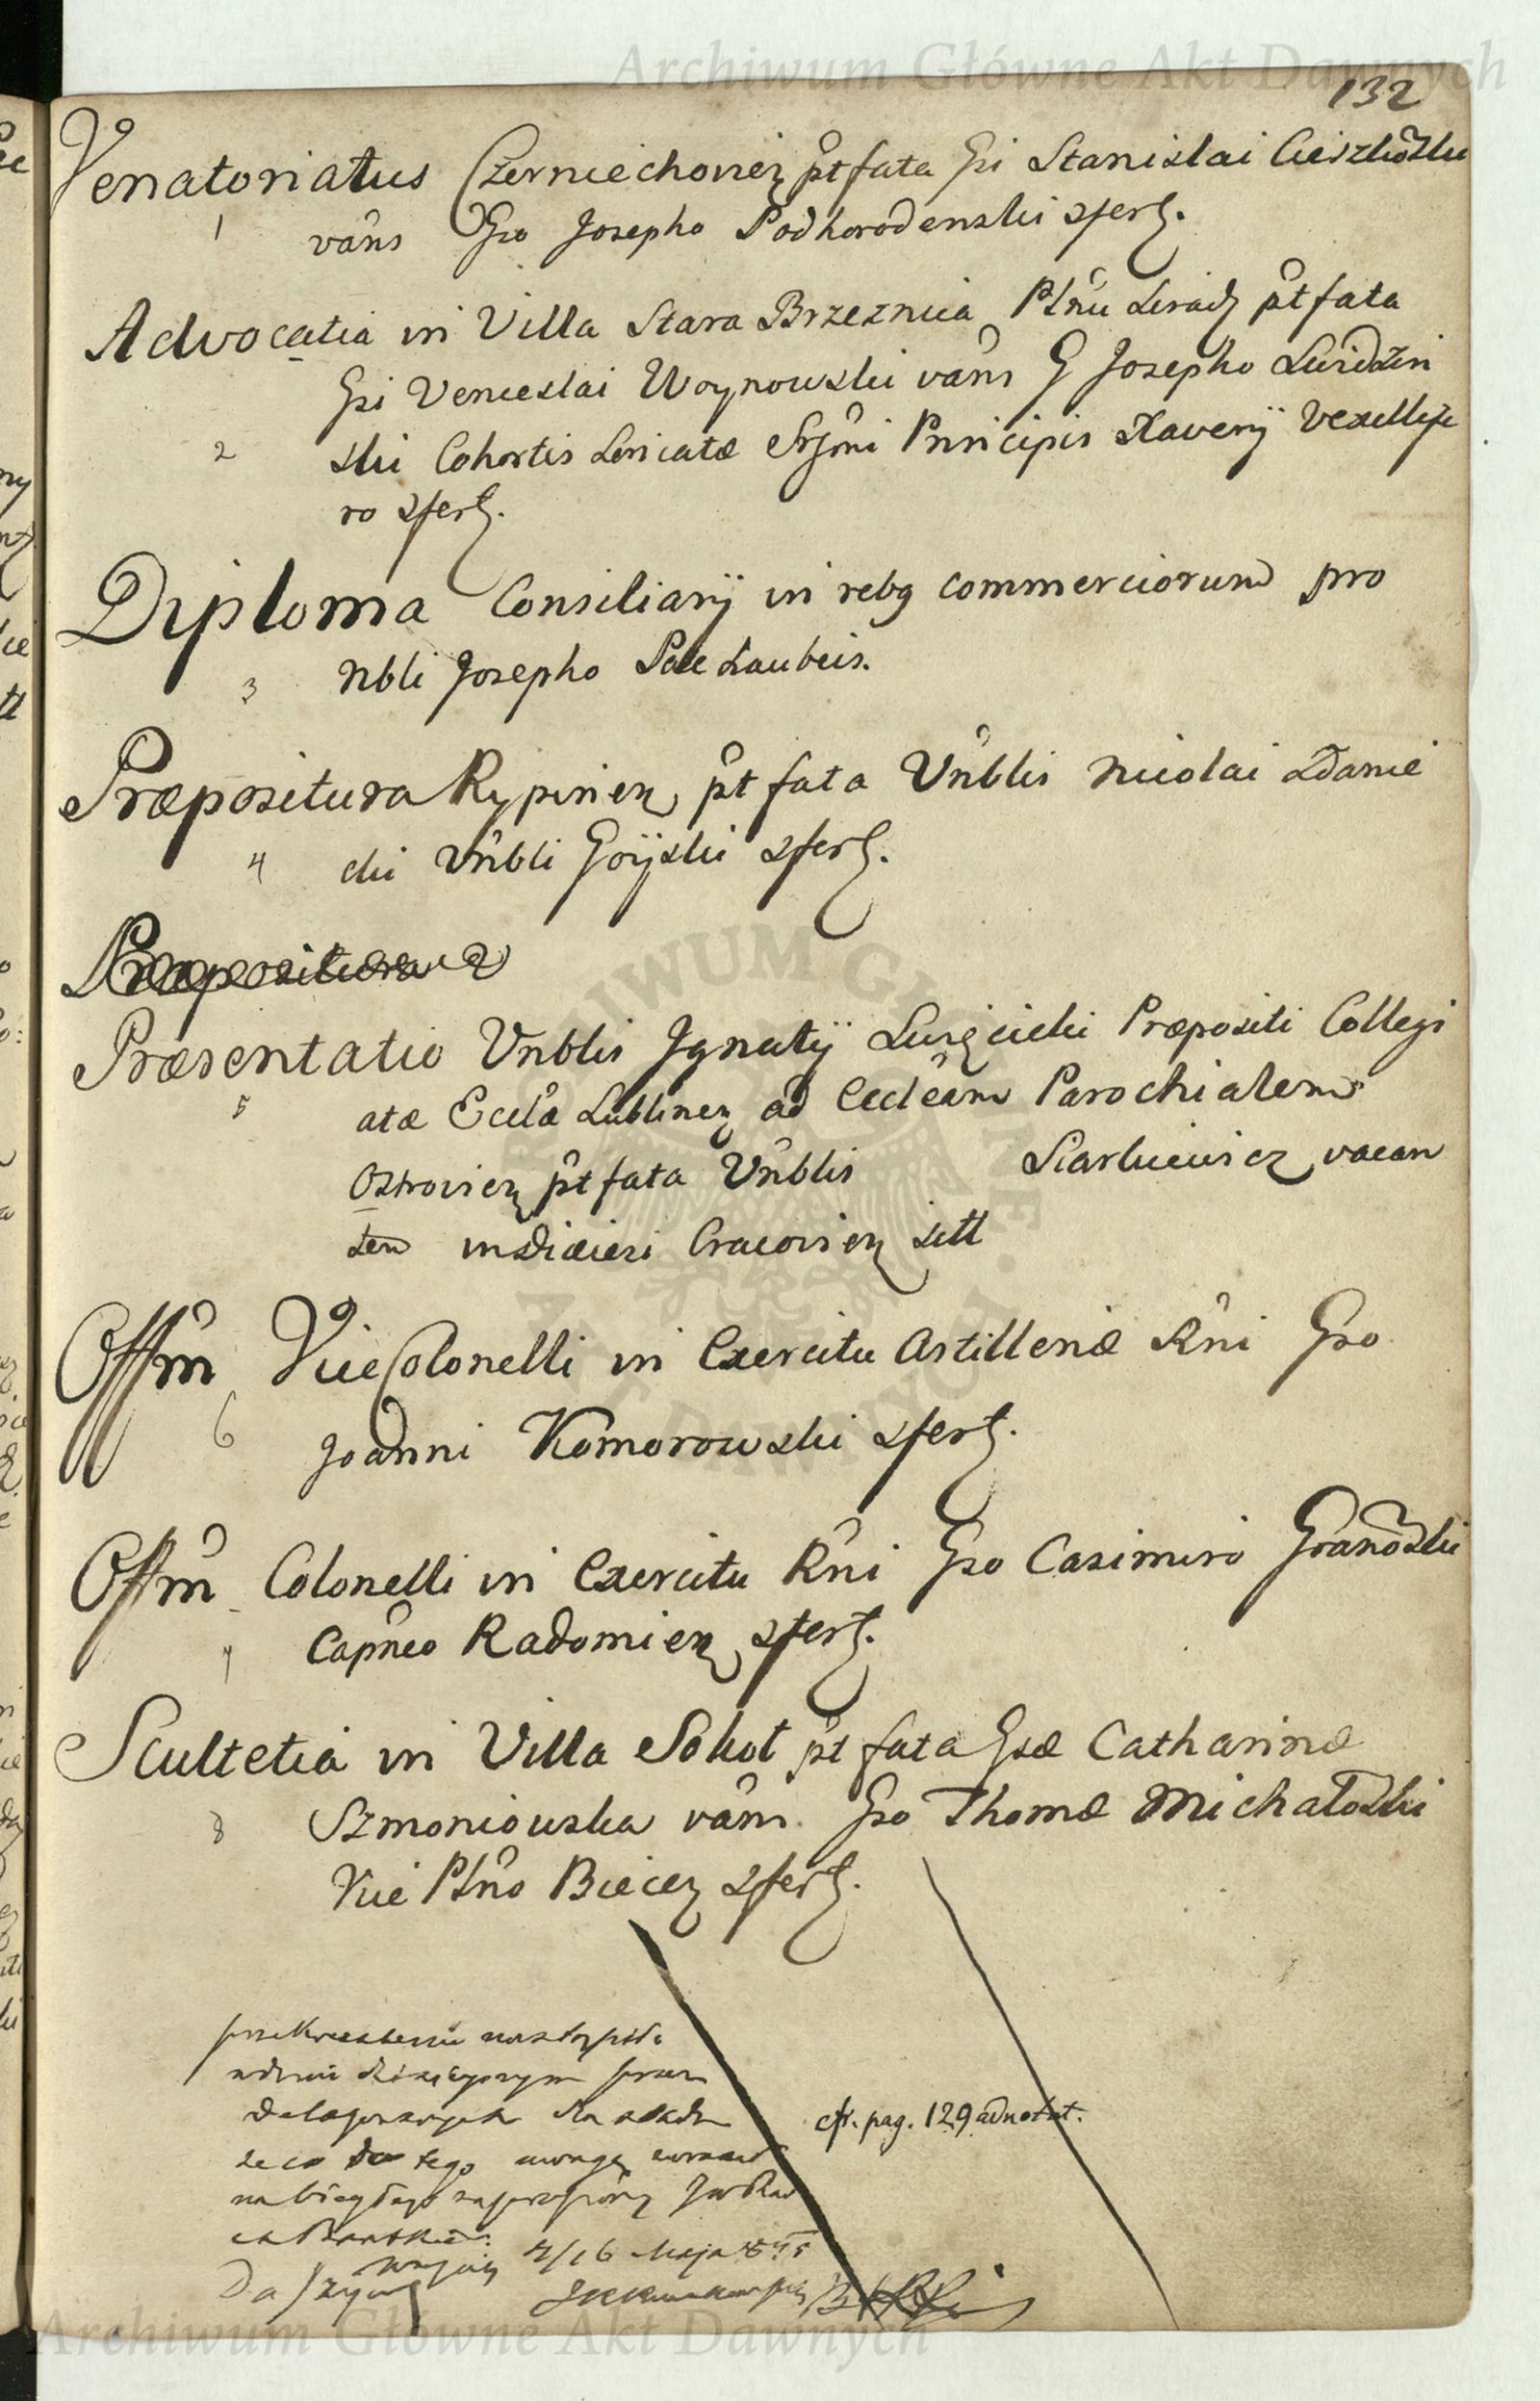 Archiwum Główne Akt Dawnych
132
Venatoriatus Czerniechovien pt fata Gsi Stanislai Cieszkoski
1 vans Gso Josepho Podhorodenski sfert.
Advocatia in Villa Stara Brzeznica Ptnu Sirad pt fata
Gsi Venceslai Woynowski vans G Josepho Suidzin
2 ski Cohortis Loricatæ Srsmi Principis Xaverÿ Vexellife
ro sfert.
Diploma Consiliarÿ in rebq commerciorum pro
3 Nbli Josepho Laubeis.
Præpositura Rypinien pt fata Vnblis Nicolai Adame
4 cki Vnbli Goÿski sfert.
Præpositura
Præsentatio Vnblis Ignatÿ Præpositi Collegi
5 atæ Eccla Lublinen ad Eccleam Parochialem
Ostrovien pt fata Vnblis Skarbkiewicz vacan
tem in Diæcesi Cracovien sitt
Offm ViceColonelli in Exercitu Artilleriæ Rni Gso
6 Joanni Komorowski sfert.
Offm Colonelli in Exercitu Rni Gso Casimiro Granoski
7 Capneo Radomien sfert.
Scultetia in Villa Sokol pt fata Gsæ Catharinæ
8 Szmoniowska vans. Gso Thomæ Michaloski
Vice Ptno Biecen sfert.
przekreslenie nastąpiło
w dniu dzisieyszym przez
delegowanych
do tego
cfr. pag. 129 adnotat.
4/16 Maja
Archiwum Główne Akt Dawnych